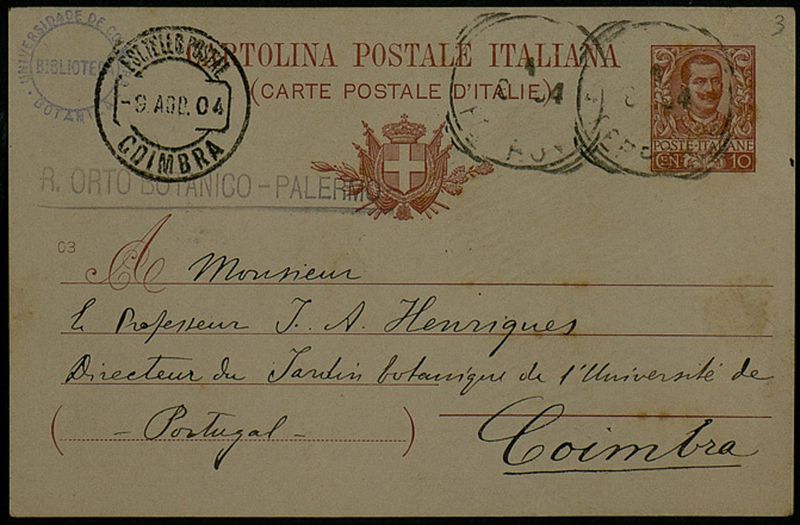 3
UNIVERSIDADE DE
BIBLIOTE
BOTANI
POSTAL
-9 AGO. 04
COIMBRA
CARTOLINA POSTALE ITALIANA
(CARTE POSTALE D'ITALIE)
POSTE ITALIANE
CEN 10
R. ORTO BOTANICO-PALERMO
03
A Monsieur
le Professeur J. A. Henriques
Directeur du Jardin botanique de l'Université de
(- Portugal -)
Coimbra